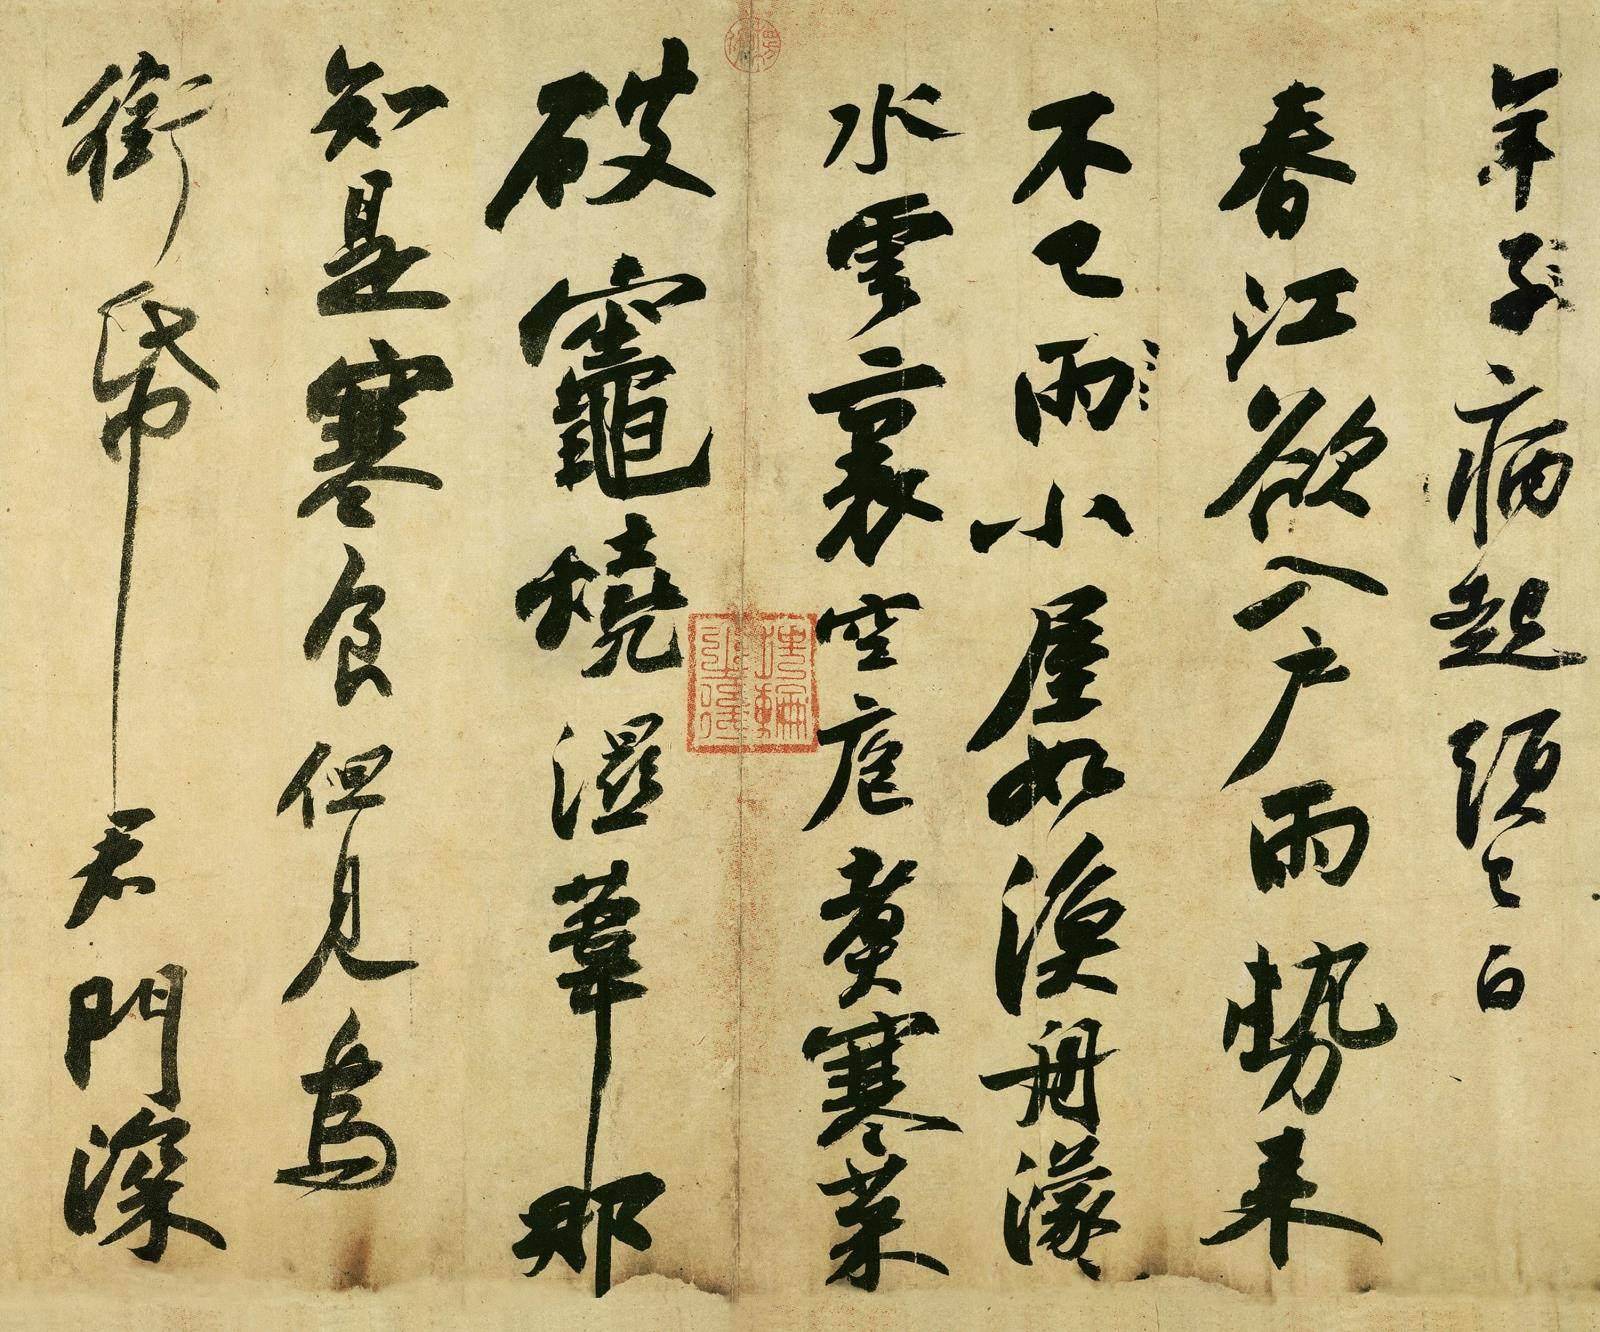 年子病起頭已白
春江欲入户雨勢来
不已雨小屋如漁舟濛〻
水雲裏空庖煮寒菜
破竈燒濕葦那
知是寒食但見烏
銜帋君門深
埋輪之後